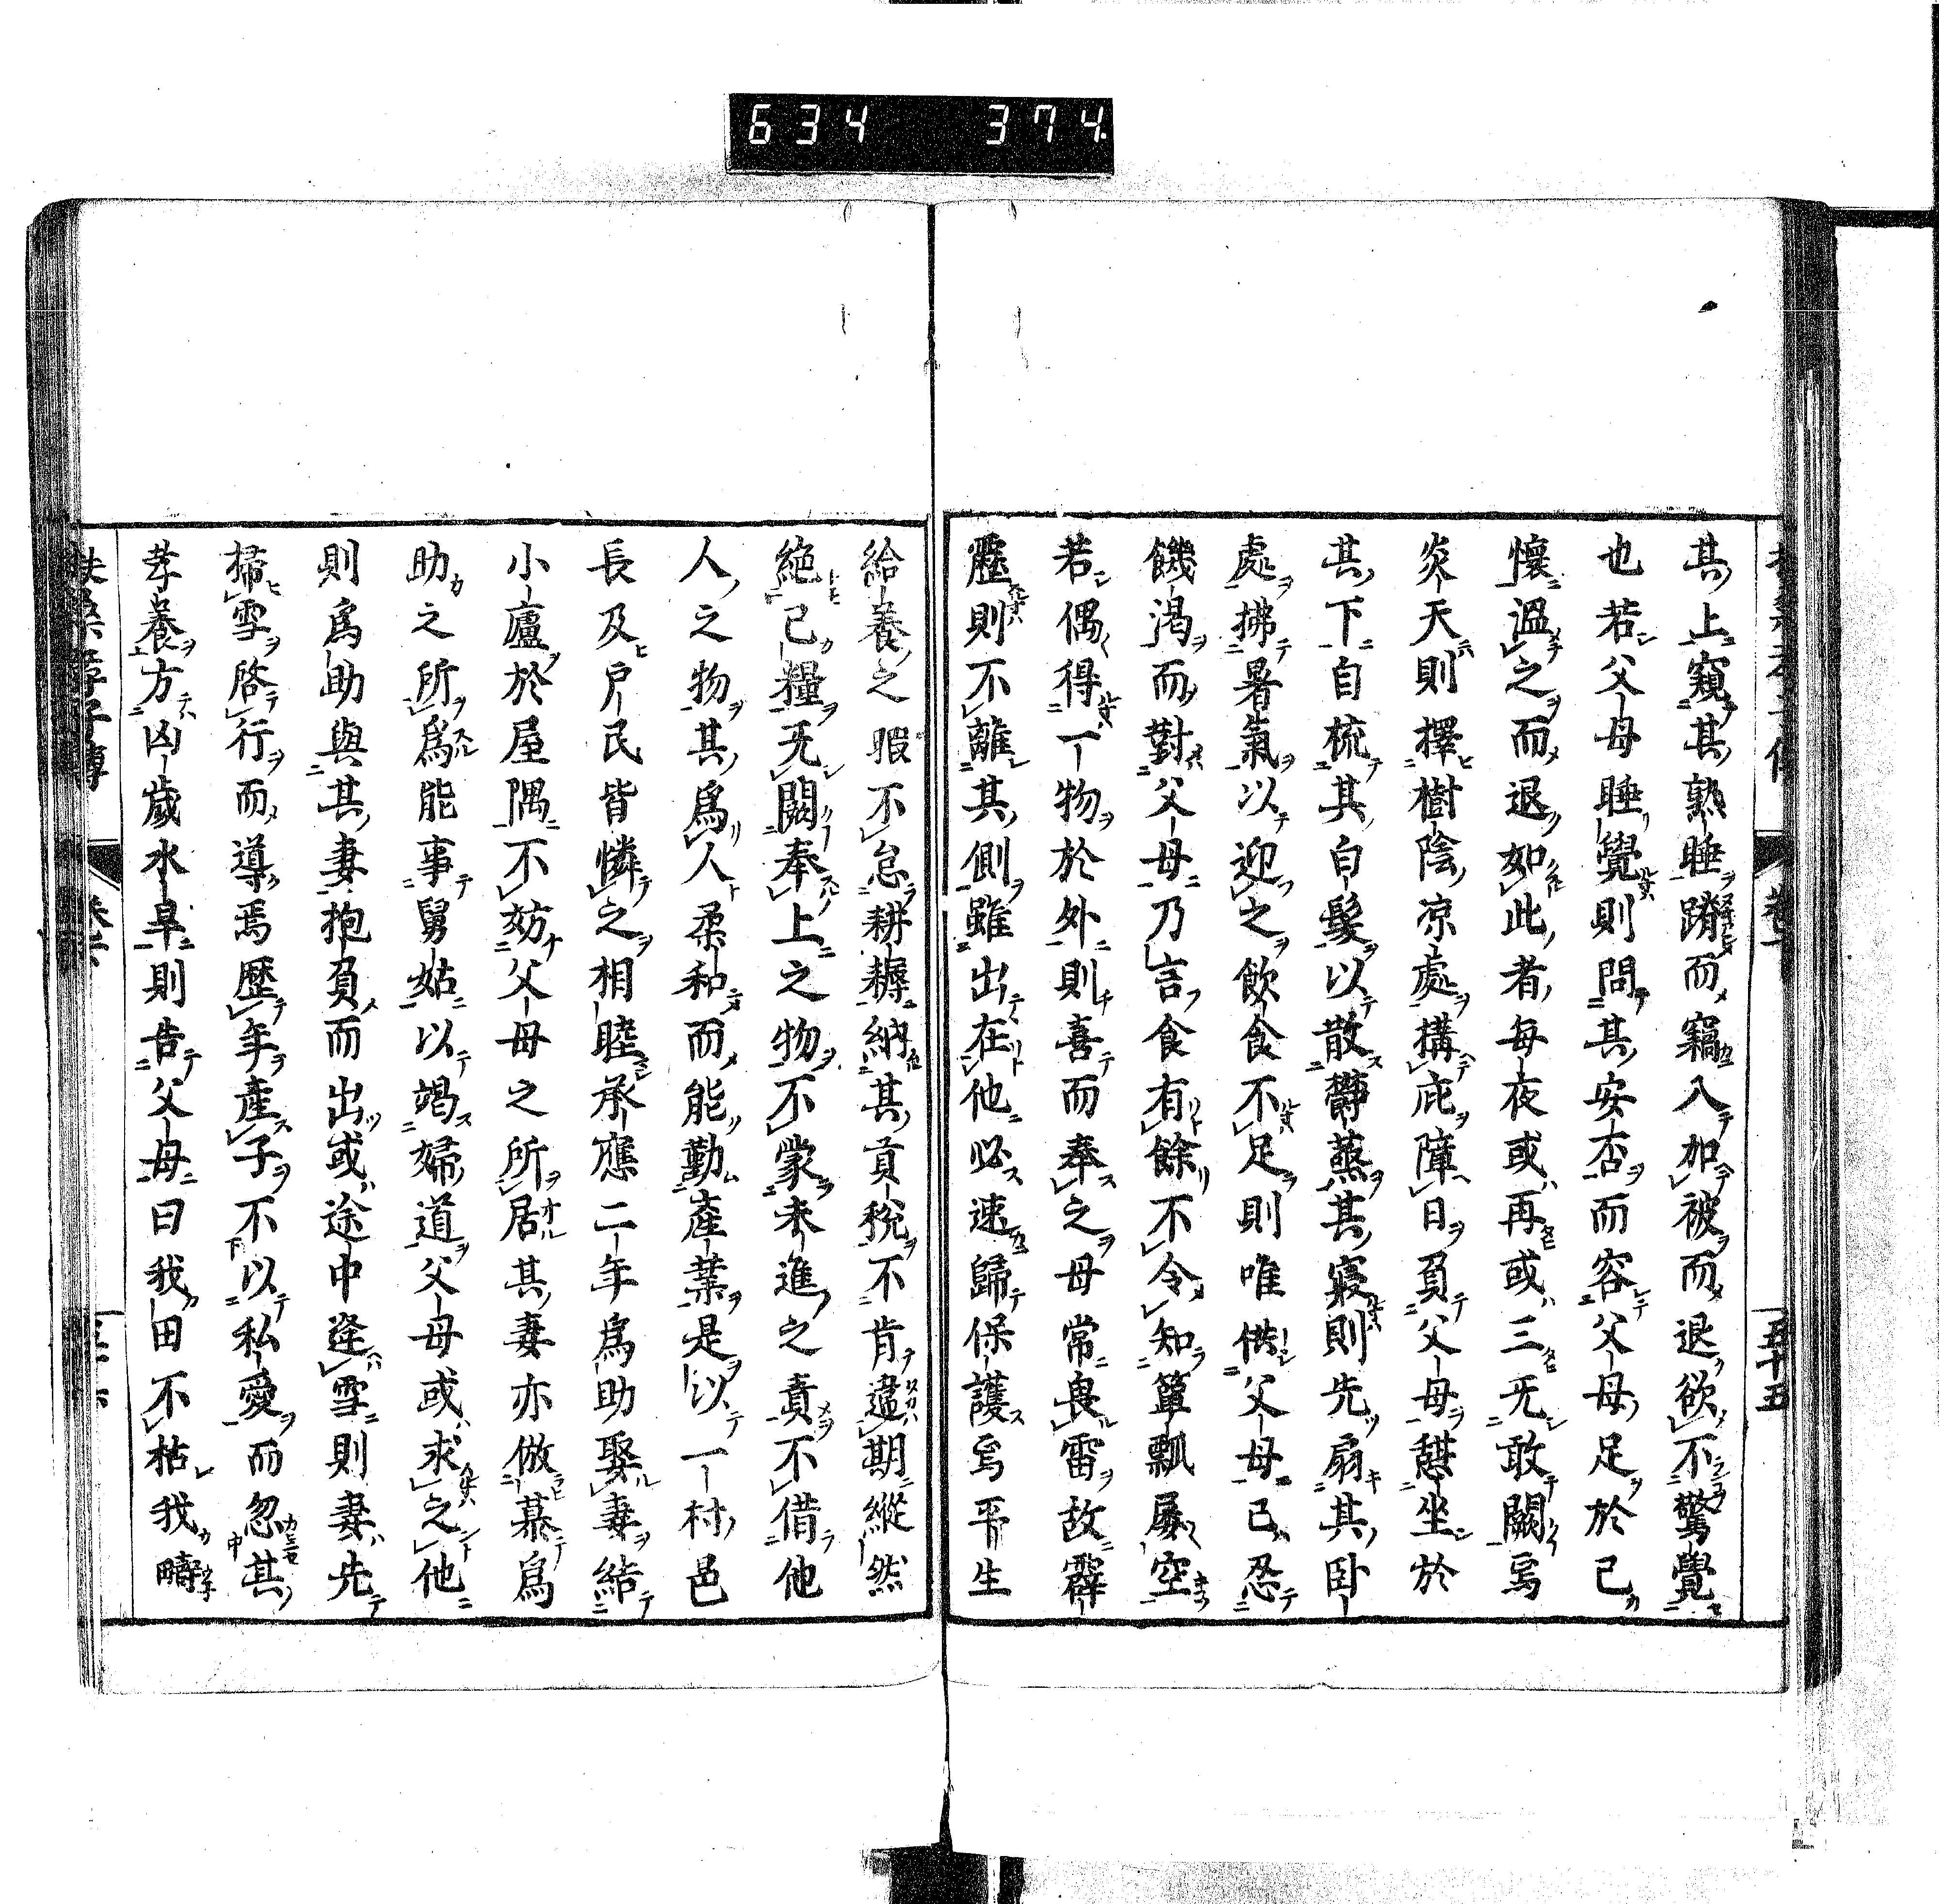 634 374
其上窺其熟睡蹐而竊入加被而退欲不驚覺
也若父母睡覺則問其安否而容父母足於己
懷溫之而退如此者每夜或再或三无敢闕焉
炎天則擇樹陰凉處構庇障日負父母憇坐於
其下自梳其白髮以散欝蒸其寢則先扇其卧
處拂暑氣以迎之飲食不足則唯供父母己忍
饑渴而對父母乃言食有餘不令知簞瓢屢空
若偶得一物於外則喜而奉之母常畏雷故霹
靂則不離其側雖出在他必速歸保護焉平生
五十五
給養之暇不怠耕耨納其貢稅不肯違期縱然
絕己糧无闕奉上之物不蒙未進之責不借他
人之物其爲人柔和而能勤產業是以一村邑
長及戶民皆憐之相睦承應二年爲助娶妻結
小廬於屋隅不妨父母之所居其妻亦倣慕爲
助之所爲能事舅姑以竭婦道父母或求之他
則爲助與其妻抱負而出或途中逢雪則妻先
掃雪啓行而導焉歷年產子不以私愛而忽其
孝養方凶歲水旱則告父母曰我田不枯我疇
扶桑孝子傳